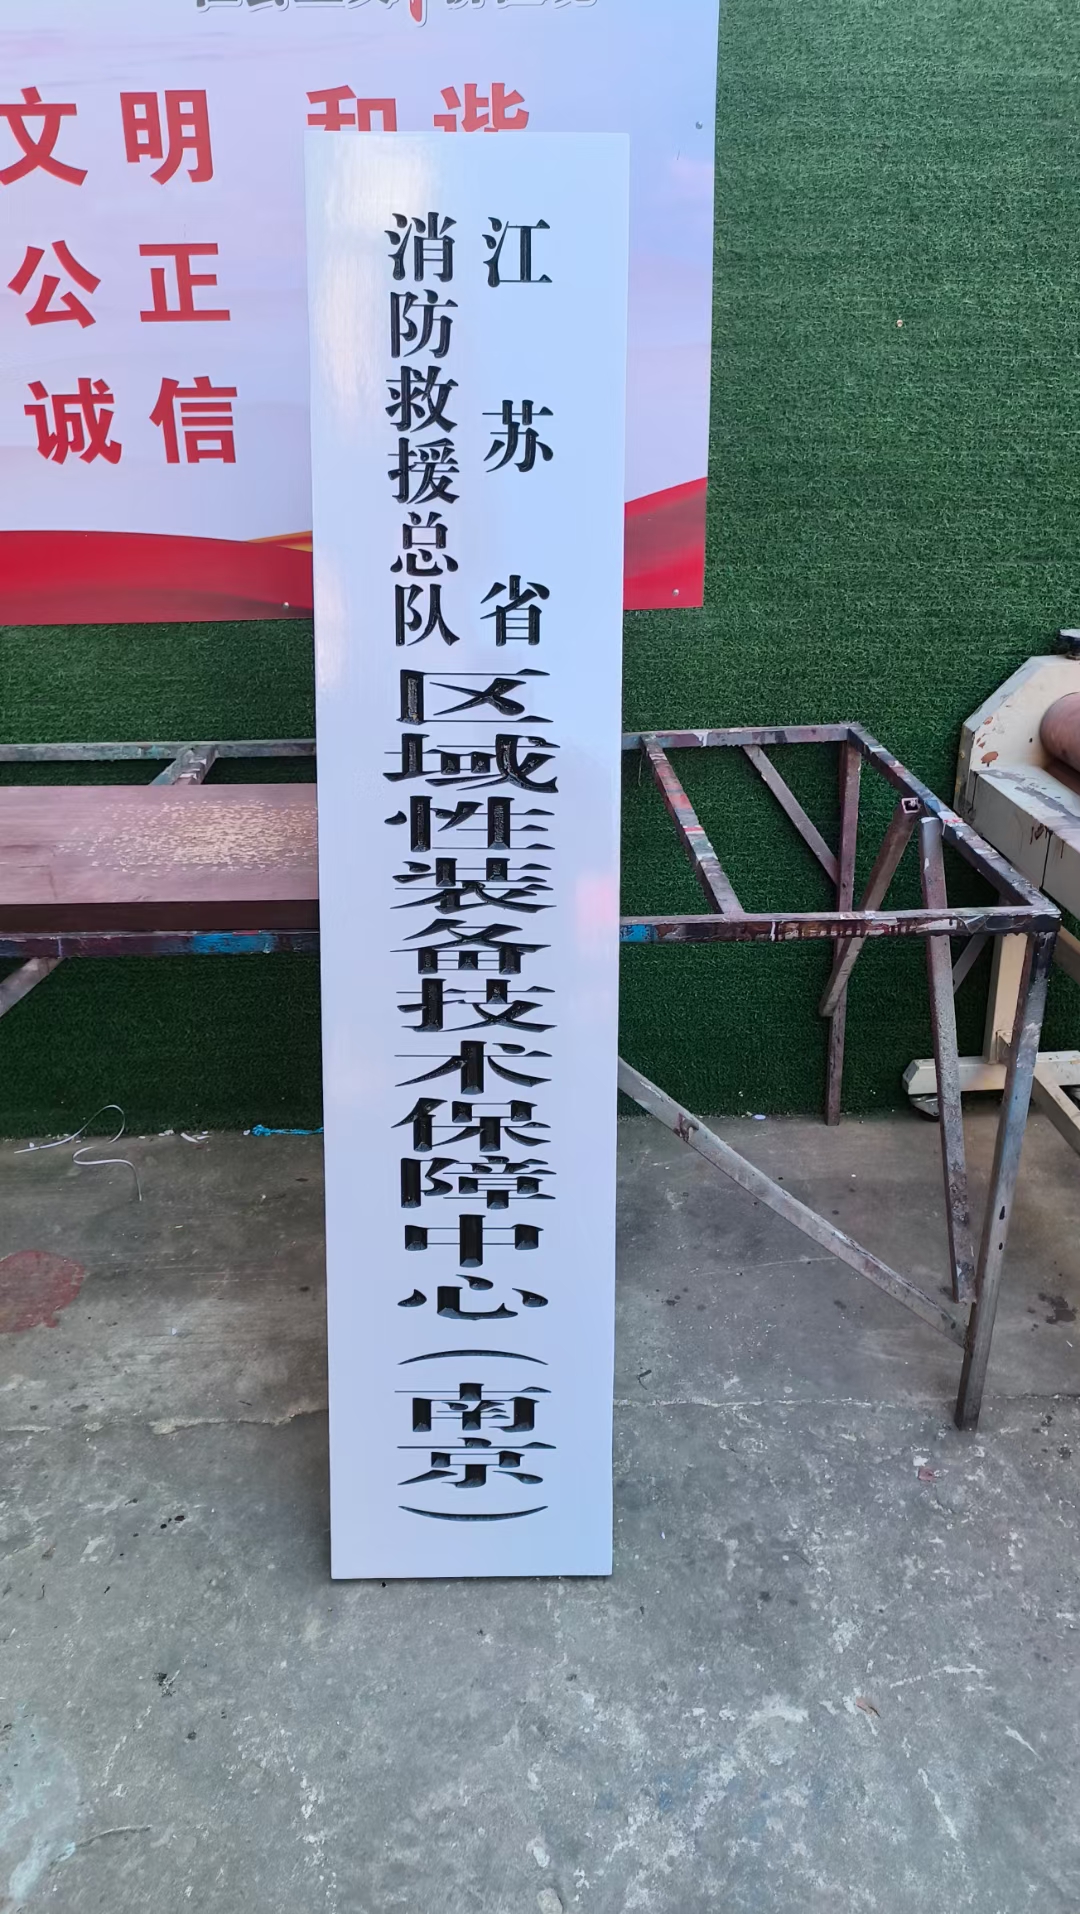 文明 和谐
公正
诚信
江苏省
消防救援总队
区域性装备技术保障中心（南京）